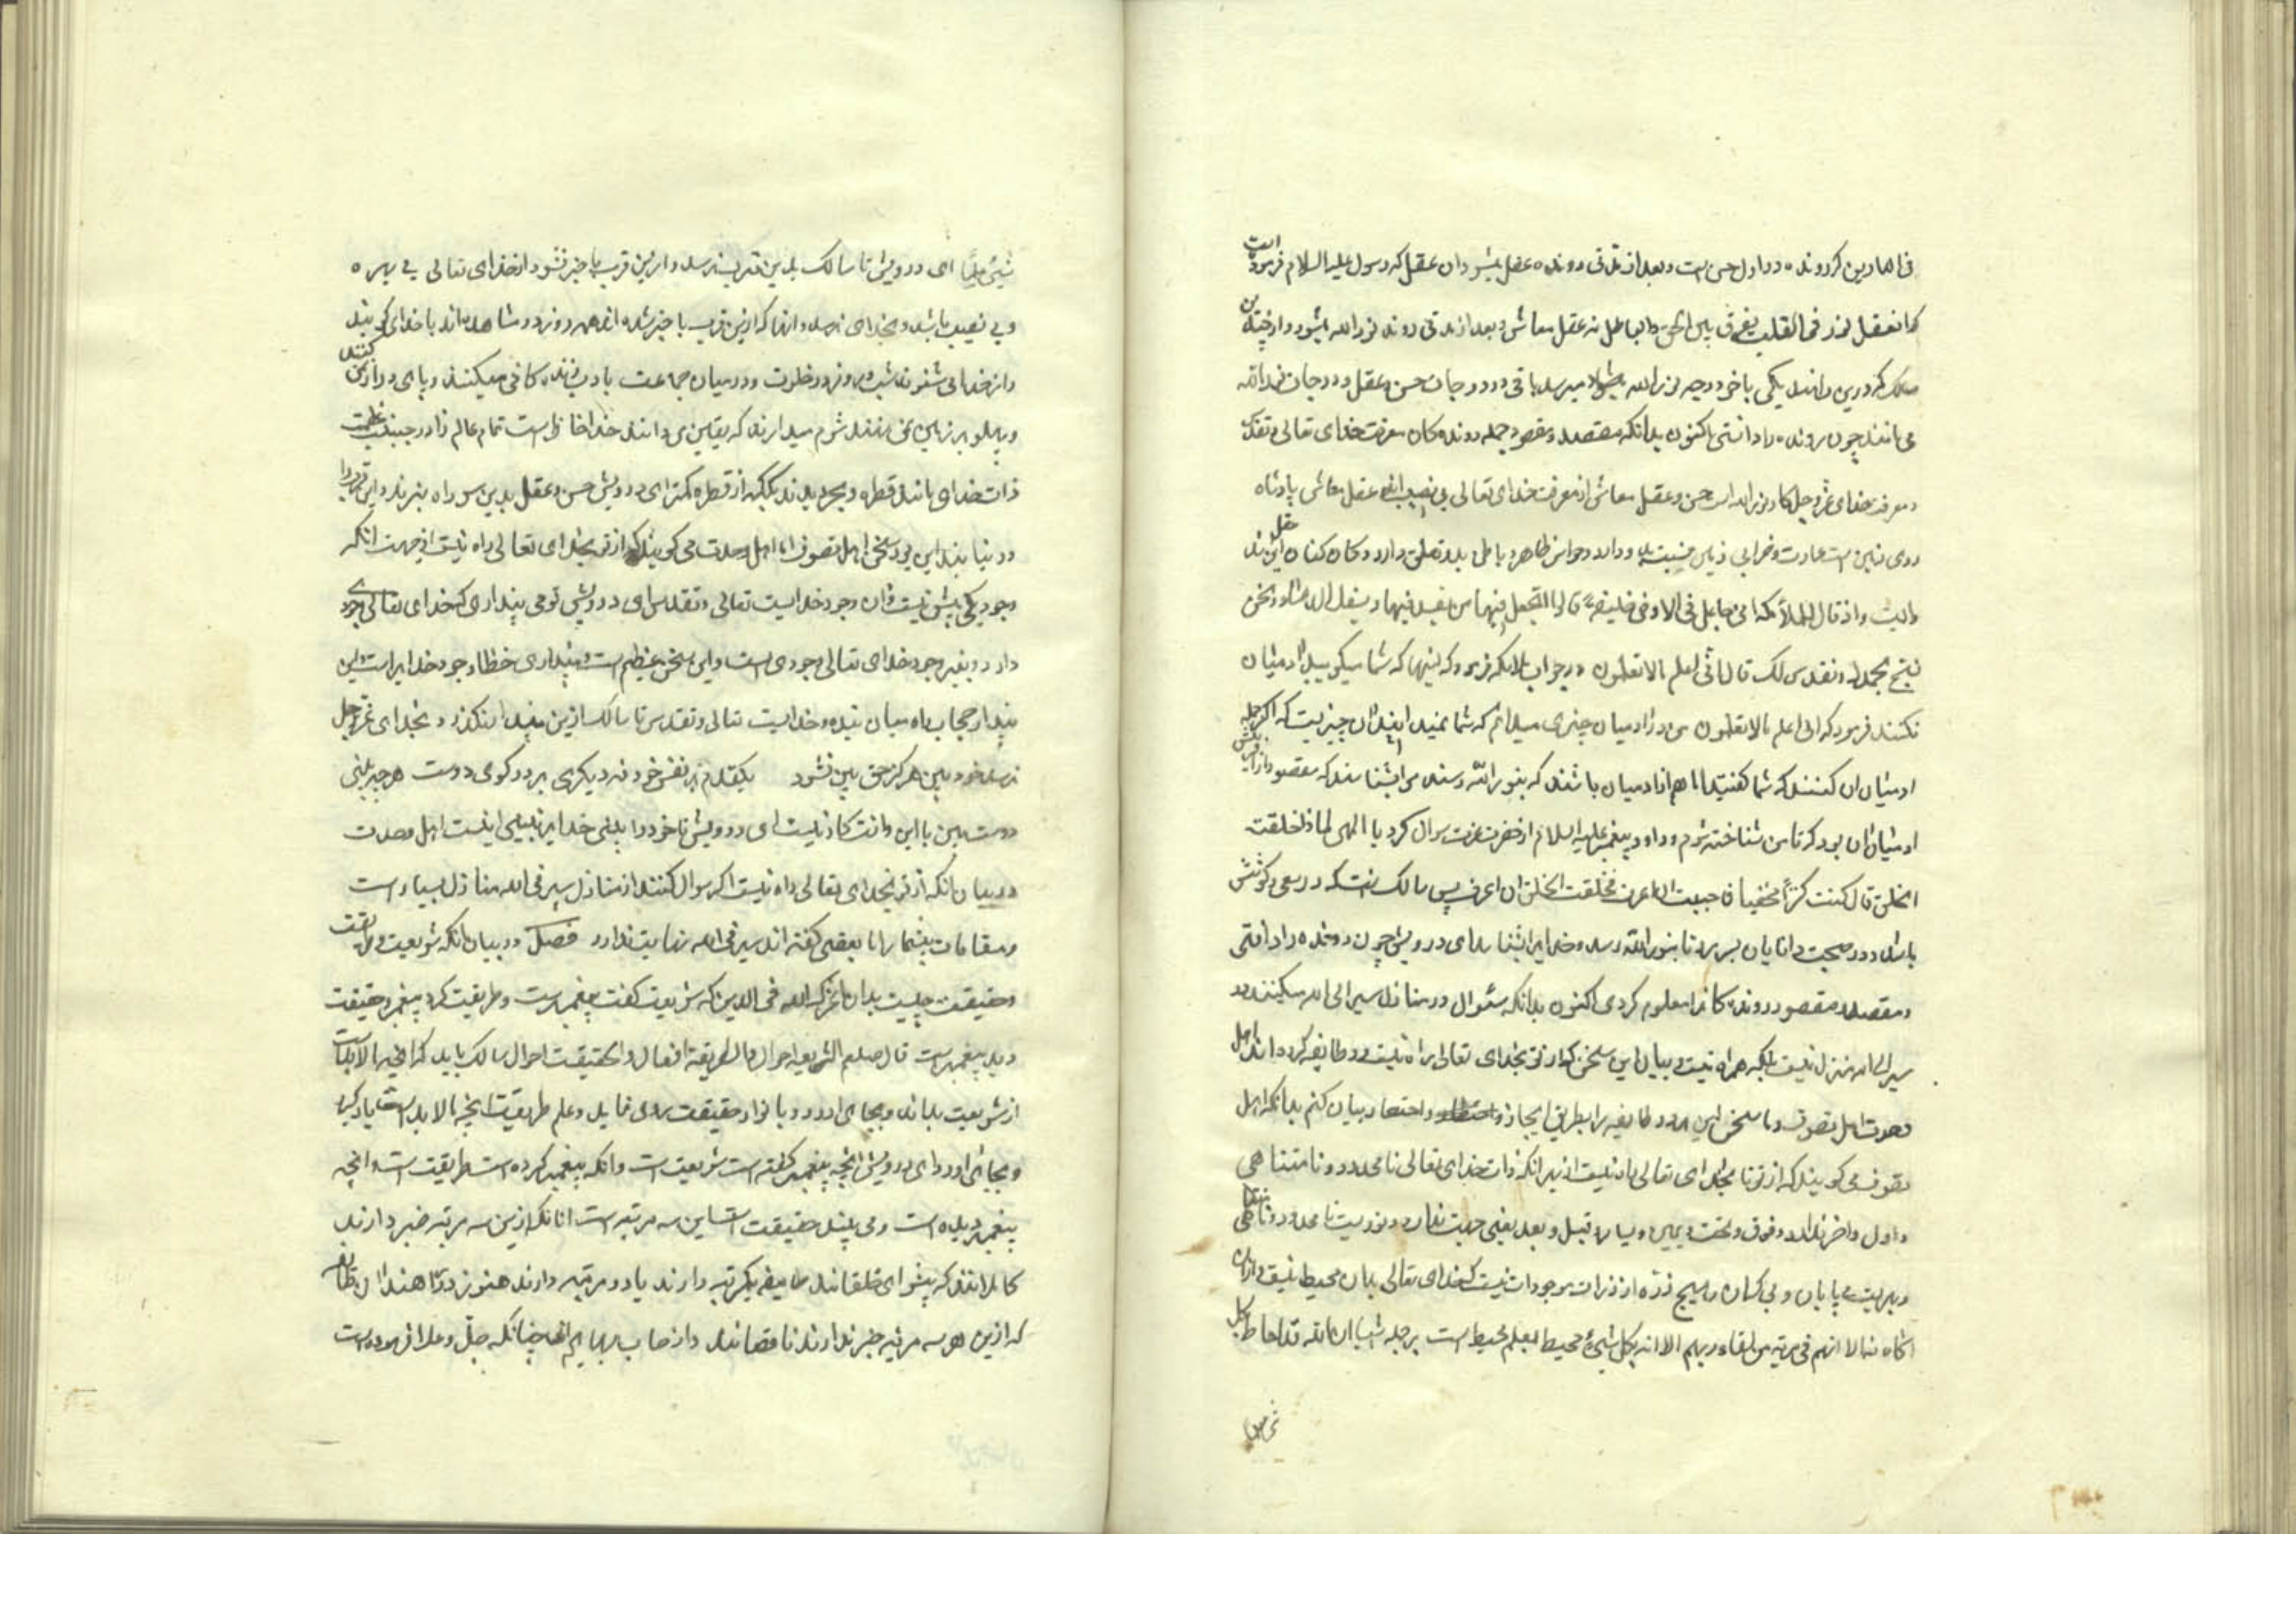 فاما بدین که رونده در اول حس است و بعد از ترقی رونده عقل میشود ان عقل که رسول علیه السلام فرموده است
که العقل نور فی القلب یفرق بین الحق و الباطل نه عقل معاش و بعد از ترقی رونده نور الله میشود
سالک که درین راه‌اند یکی باخر درجه نور الله میرسد باقی در درجات حس و عقل و درجات نور الله
می مانند چون رونده را دانستی اکنون بدانکه مقصد و مقصود جمله روندگان معرفت خدای تعالی و تقدس
و معرفت خدای عز و جل کار نور الله است حس و عقل معاش از معرفت خدای تعالی بی نصیب اند عقل معاش پادشاه
روی زمین است عمارت و خرابی زمین نسبت بدو دارد و حواس ظاهر و باطن بدو تعلق دارد و کارکنان این عقل اند
و اذ قال للملائکه انی جاعل فی الارض خلیفة قالوا اتجعل فیها من یفسد فیها و یسفک الدماء و نحن
نسبح بحمدک و نقدس لک قال انی اعلم ما لا تعلمون در جواب ملائکه فرمود که اینها که شما میگویید ادمیان
نکنند فرمود که انی اعلم ما لا تعلمون من در ادمیان چیزی میدانم که شما نمیدانید ان چیزیست که اگر چه بعضی از
ادمیان ان کنند که شما گفتید اما هم از ادمیان باشند که بنور الله رسند و مرا بشناسند که مقصود از افرینش
ادمیان ان بود که تا من شناخته شوم و داود پیغمبر علیه السلام از حضرت عزت سوال کرد یا الهی لماذا خلقت
الخلق قال کنت کنزاً مخفیا فاحببت ان اعرف فخلقت الخلق ان اعرف پس سالک انست که در سعی و کوشش
باشد و در صحبت دانایان بسر برد تا بنور الله رسد و خدایرا بشناسد ای درویش چون رونده را دانستی
و مقصد و مقصود روندگان را معلوم کردی اکنون بدانکه سئوال در منازل سیر الی الله میکنند در
سیر الی الله منزل نیست بلکه همراه نیست و بیان این سخن که از تو تا بخدای تعالی راه نیست دو طایفه کرده‌اند اهل
وحدت و اهل تصوف و ما سخن این هر دو طایفه را بطریق ایجاز و اختصار بیان کنم بدانکه اهل
تصوف می گویند که از تو تا بخدای تعالی راه نیست از بهر انکه ذات خدای تعالی نامحدود و نامتناهی
و اول و اخر ندارد و فوق و تحت و یمین و یسار و قبل و بعد یعنی جهت ندارد و نوریست نامحدود و نامتناهی
و بحریست بی پایان و بی کران و هیچ ذره از ذرات موجودات نیست که خدای تعالی بدان محیط نیست و از ان
اگاه نه الا انهم فی مریة من لقاء ربهم الا انه بکل شیئ محیط بعلم محیط است بر جمله اشیا ان الله قد احاط بکل
شیئ علماً
شیئ علماً ای درویش تا سالک بدین قرب نرسد و ازین قرب با خبر نشود از خدای تعالی بی بهره
و بی نصیب باشد و بخدای نرسد و انها که ازین قرب با خبر شده‌اند همه روز در مشاهده‌اند با خدای گویند
و از خدا می شنوند شب و روز در خلوت و در میان جماعت بادب زندگانی میکنند و پای دراز نمی کنند
و پهلو بر زمین نمی نهند شرم میدارند که بیقین می دانند خدا حاضر است تمام عالم را در جنب عظمت
ذات خدای مانند قطره و بحر بدیدند بلکه از قطره کمتر ای درویش حس و عقل بدین سو راه نبرند و این قرب را
در نیابند این بود سخن اهل تصوف اما اهل وحدت می گویند که از تو بخدای تعالی راه نیست از جهت انکه
وجود یکی بیش نیست و ان وجود خدایست تعالی و تقدس ای درویش تو می پنداری که خدای تعالی وجودی
دارد و بغیر وجود خدای تعالی وجودی است و این سخن عظیم است و پنداری خطا وجود خدایراست و این
پندار حجاب راه میان بنده و خدایست تعالی و تقدس تا سالک ازین پندار نگذرد بخدای عز و جل
نرسد خود بین هرگز حق بین نشود یکقدم بر نفس خود نه دیگری بر در کوی دوست هر چه بینی
دوست بین با این و انت کار نیست ای درویش تا خود را بینی خدایرا نبینی اینست اهل وحدت
در بیان انکه از تو بخدای تعالی راه نیست اگر سوال کنند از منازل سیر فی الله منازل بسیار است
و مقامات بیشمار اما بعضی گفته‌اند سیر فی الله نهایت ندارد فصل در بیان انکه شریعت و طریقت
و حقیقت چیست بدان اعزک الله فی الدین که شریعت گفت پیغمبرست و طریقت کرد پیغمبر و حقیقت
دید پیغمبرست قال صلعم الشریعه اقوال و الطریقة افعال و الحقیقت احوال سالک باید که اول انچه لابد است
از شریعت بداند و بجای ارد و تا انوار حقیقت روی نماید و علم طریقت انچه مالابد است یاد گیرد
و بجای اورد ای درویش انچه پیغمبر گفته است شریعت است و انچه پیغمبر کرده است طریقت است و انچه
پیغمبر دیده است و می بیند حقیقت است این سه مرتبه است انانکه ازین سه مرتبه خبر دارند
کاملانند که پیشوای خلقانند طایفه یکمرتبه دارند یا دو مرتبه دارند هنوز در راهند ان طایفه
که ازین هر سه مرتبه خبر ندارند ناقصانند و از حساب بهایم اند چنانکه جل و علا فرموده است